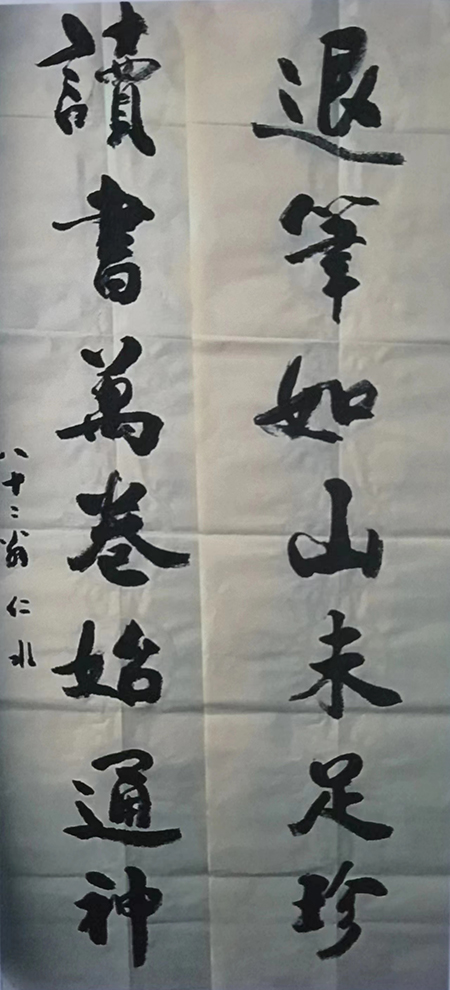 退筆如山未足珍
讀書萬卷始通神
八十二翁仁水